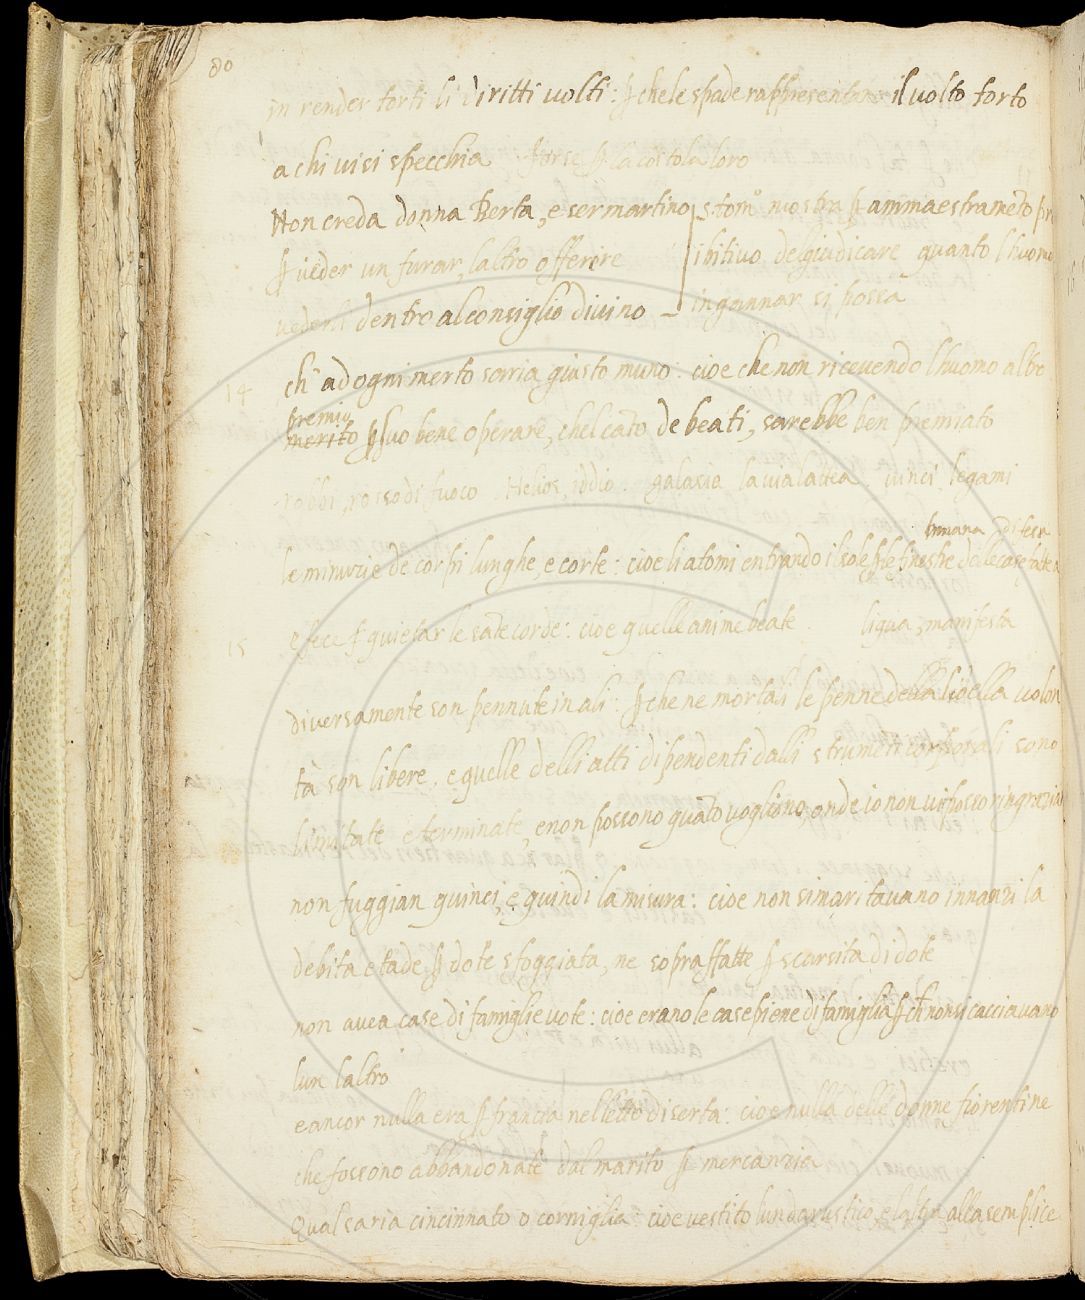 80
in render torti li diritti volti: ꝑ che le spade rappresentan il volto torto
a chi vi si specchia forse ꝑ la costola loro
Non creda donna Berta, e ser martino s. tom.º mostra ꝑ ammaestrameto pr
ꝑ veder un furar, laltro offerere ibitivo del giudicare quanto l huomo
vederli dentro al consiglio divino ingannar si possa
14
ch' ad ogni merto saria giusto muno: cioe che non ricevendo l huomo altro
premio
merito ꝑ suo bene operare, chel cato de beati, sarebbe ben premiato
robbi, rosso di fuoco. Helios, iddio. galasia la via lattea. vinci, legami
humana di fesa
le minuzie de corpi lunghe, e corte: cioe li atomi entrando il sole ꝑ le finestre delle case fatte
15
e fece ꝑ quietar le sate corde: cioe quelle anime beate. ligua, manifesta
diversamente son pennute in ali: ꝑ che ne mortali le penne della lo ella volon
tà son libere, e quelle delli atti dipendenti dalli strumeti corporali sono
limitate e terminate, e non possono quato vogliono, onde io non vi posso ringraziar
non fuggian quinci, e quindi la misura: cioe non si maritavano innanzi la
debita etade ꝑ dote sfoggiata, ne sopraffatte ꝑ scarsita di dote
non avea case di famiglie vote: cioe erano le case piene di famiglia ꝑ ch non si cacciavano
lun laltro
e ancor nulla era ꝑ francia nel letto diserta: cioe nulla delle donne fiorentine
che fossono abbandonate dal marito ꝑ mercanzia
Qual saria cincinnato o corniglia: cioe vestito lun da rustico, e laltra alla semplice